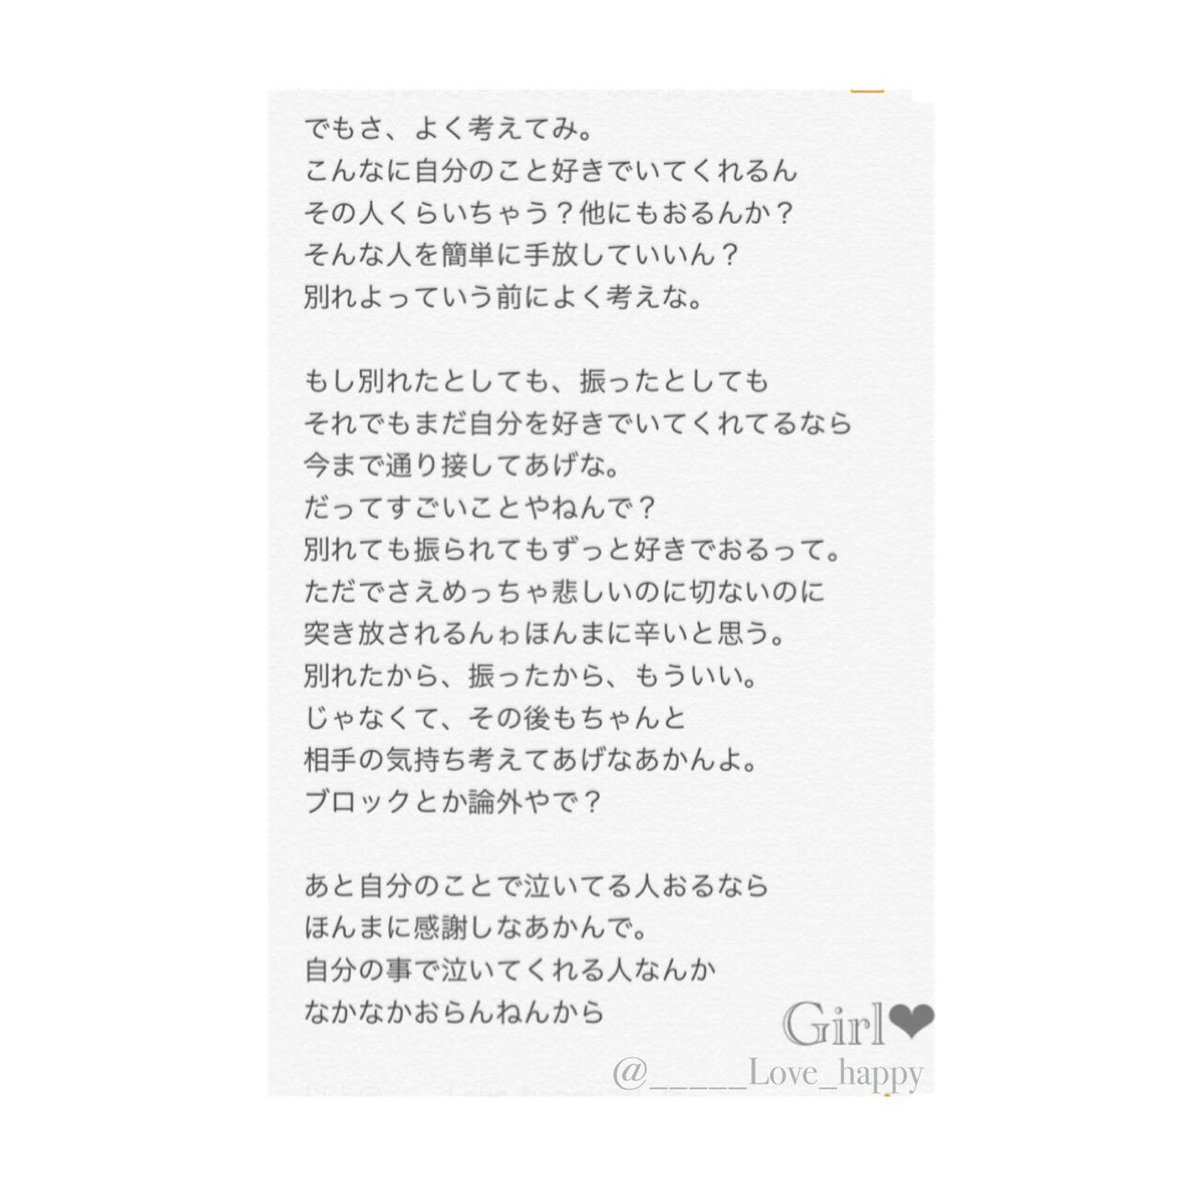 でもさ、よく考えてみ。
こんなに自分のこと好きでいてくれるん
その人くらいちゃう？他にもおるんか？
そんな人を簡単に手放していいん？
別れよっていう前によく考えな。
もし別れたとしても、振ったとしても
それでもまだ自分を好きでいてくれてるなら
今まで通り接してあげな。
だってすごいことやねんで？
別れても振られてもずっと好きでおるって。
ただでさえめっちゃ悲しいのに切ないのに
突き放されるんゎほんまに辛いと思う。
別れたから、振ったから、もういい。
じゃなくて、その後もちゃんと
相手の気持ち考えてあげなあかんよ。
ブロックとか論外やで？
あと自分のことで泣いてる人おるなら
ほんまに感謝しなあかんで。
自分の事で泣いてくれる人なんか
なかなかおらんねんから
Girl❤
@_____Love_happy